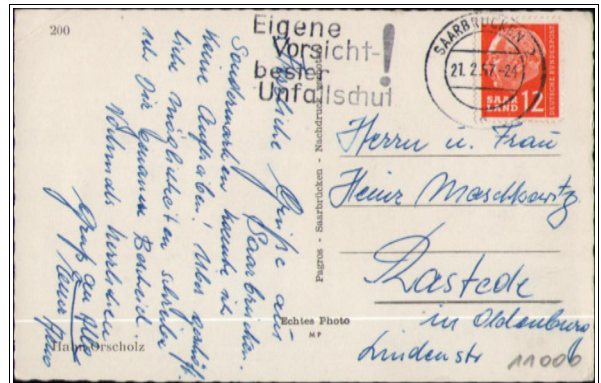 200
Eigene
Vorsicht-
bester
Unfallschutz!
SAARBRÜCKEN
21.2.57-24
SAAR
LAND 12
DEUTSCHE BUNDESPOST
Herzliche Grüße aus
Saarbrücken.
Sondermarken heute in
keine Aufgaben! Über
liche Möglichkeiten schreibe
ich Dir genauen Bescheid.
Nochmals herzlichen
Gruß an alle
Pagros - Saarbrücken - Nachdruck verboten
Echtes Photo
MP
Hahn Orscholz
Herrn u. Frau
Heinz Maschkowitz
Rastede
in Oldenburg
Lindenstr
11000